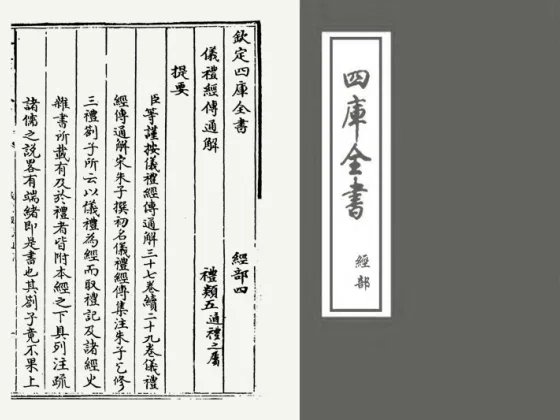 欽定四庫全書 經部四
儀禮經傳通解 禮類五通禮之屬
提要
臣等謹按儀禮經傳通解三十七卷續二十九卷儀禮
經傳通解宋朱子撰初名儀禮經傳集注朱子乞修
三禮劄子所云以儀禮為經而取禮記及諸經史
雜書所載有及於禮者皆附本經之下具列注疏
諸儒之說畧有端緒即是書也其劄子竟不果上
四庫全書
經部